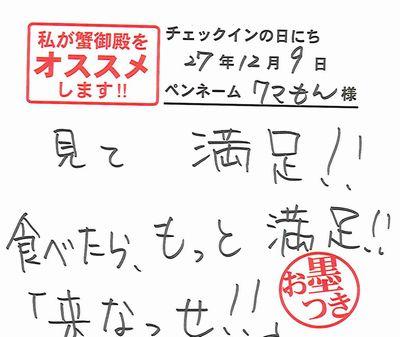 私が蟹御殿を
オススメ
します!!
チェックインの日にち
27年12月9日
ペンネーム クマもん 様
見て 満足!!
食べたら、もっと 満足!!
「来なっせ!!」
お墨つき